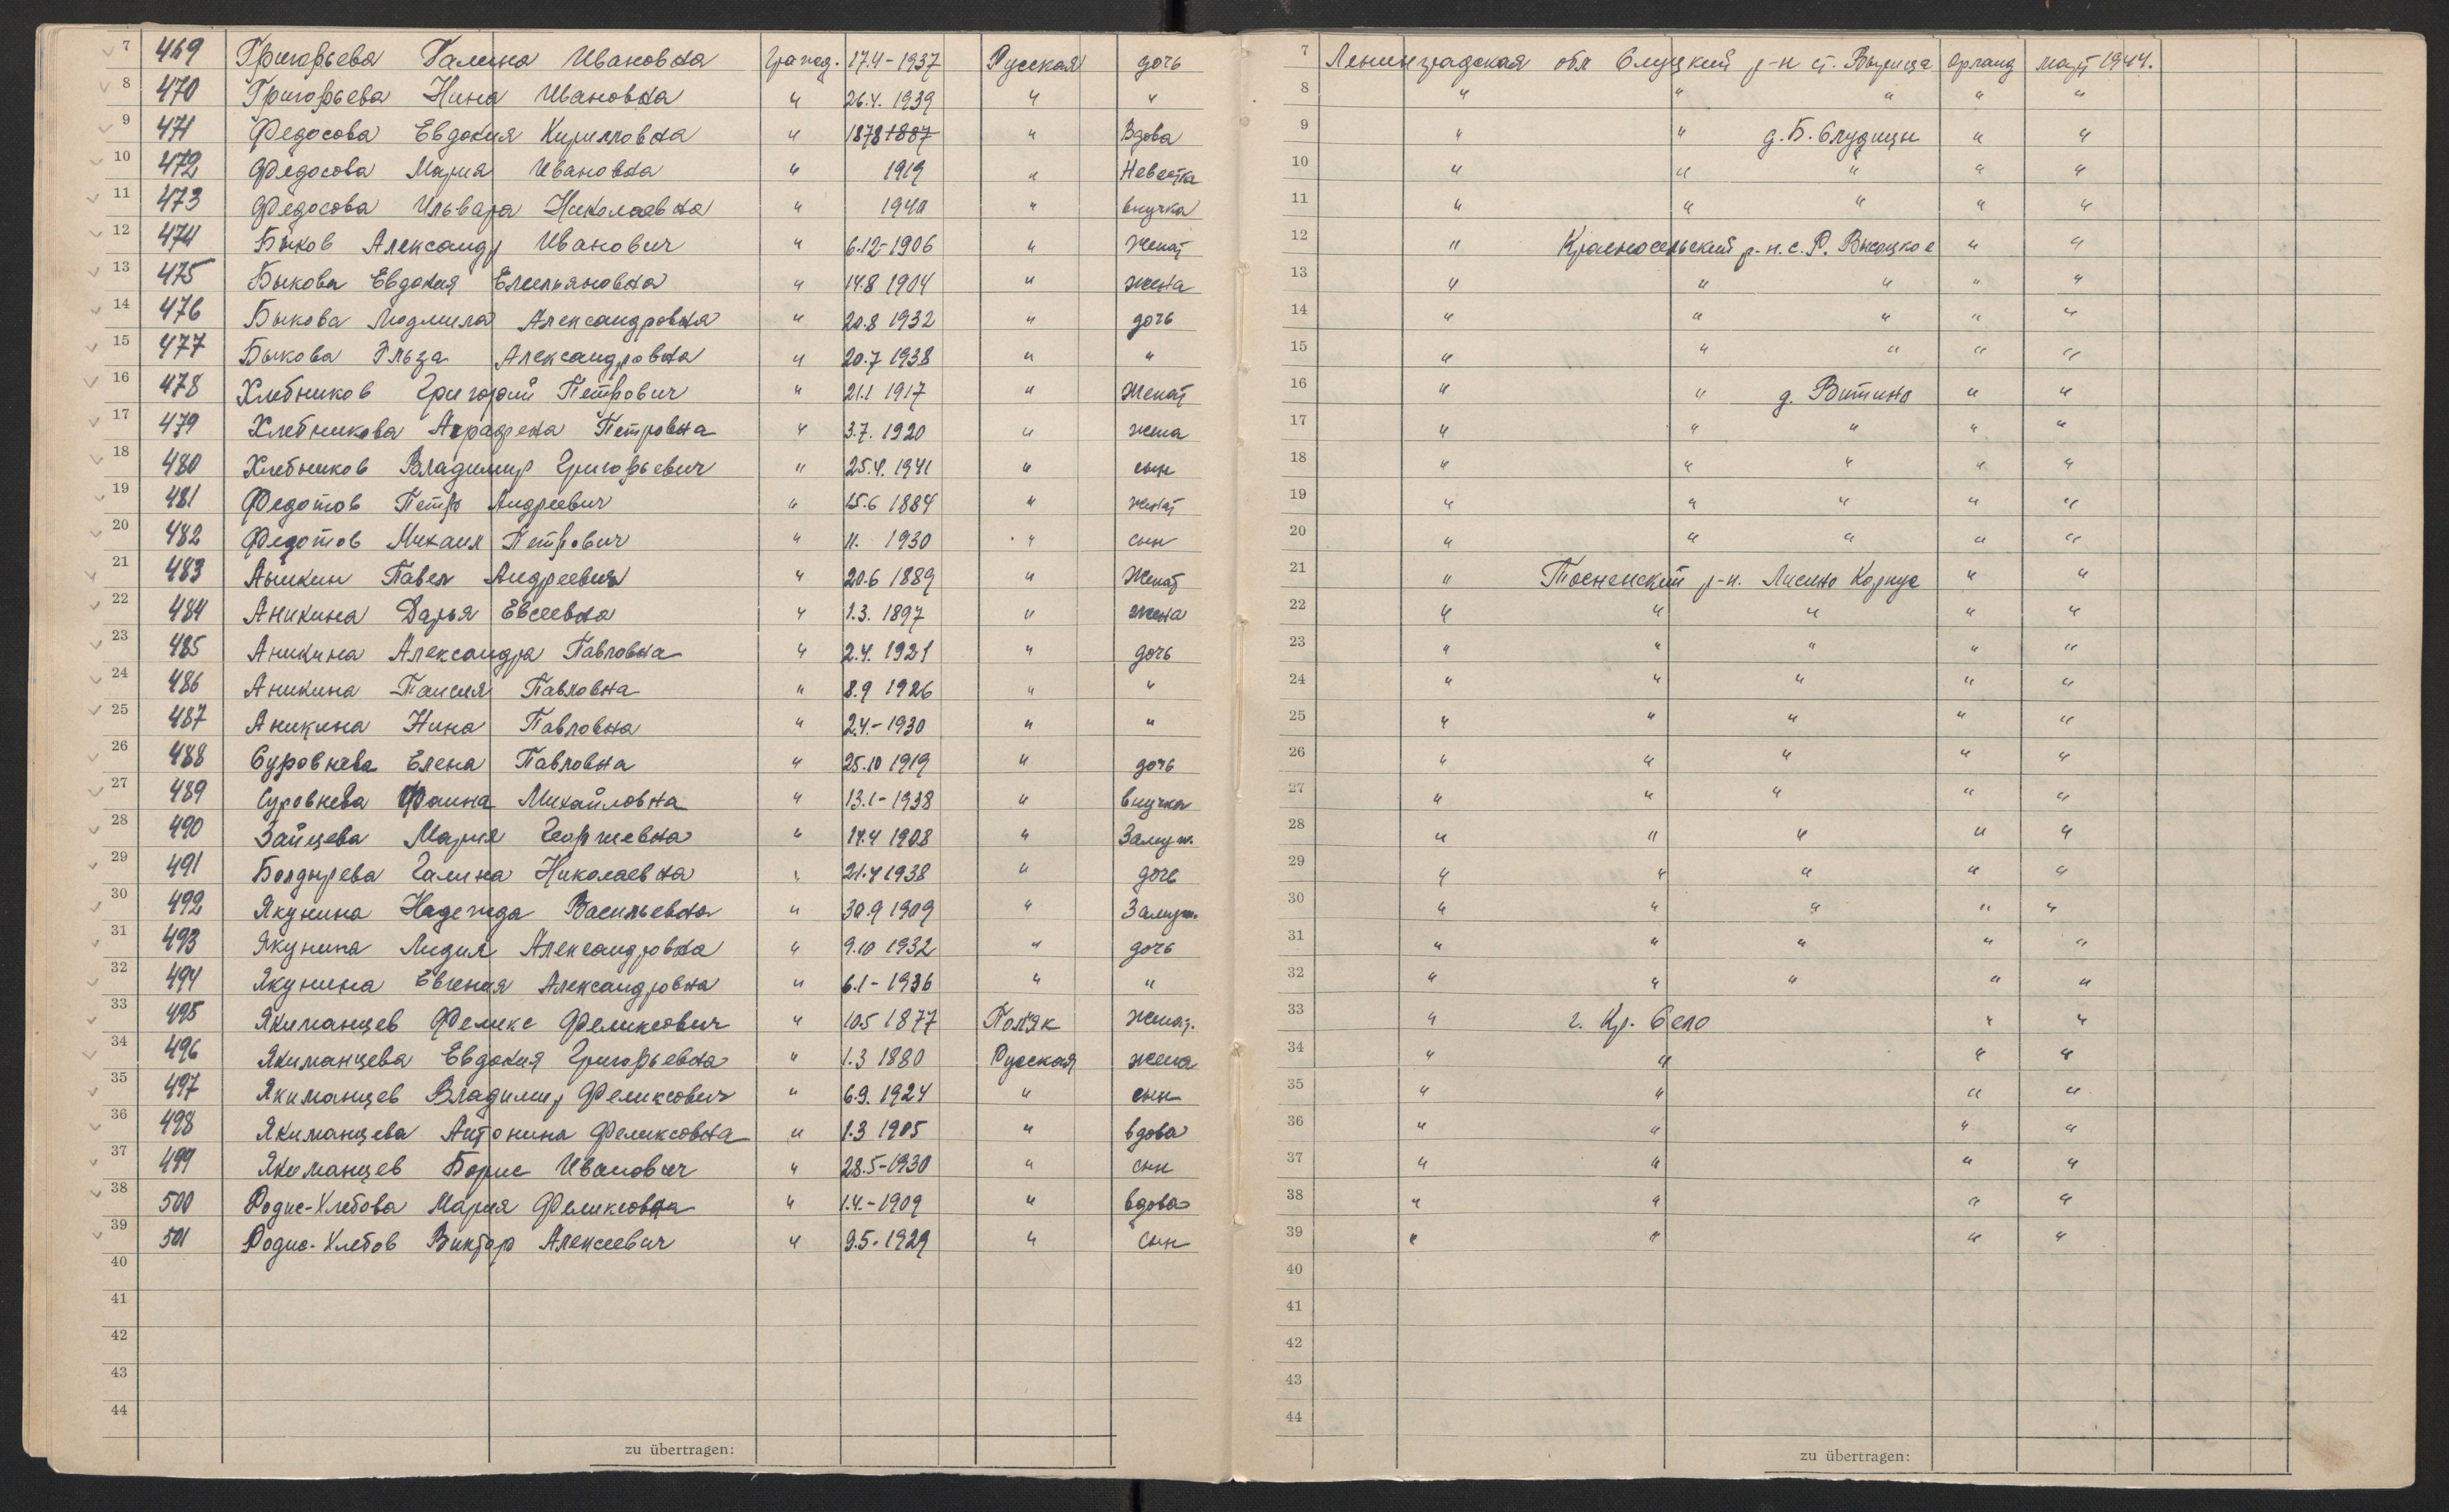 7 469 Григорьева Галина Ивановна гражд. 17.4-1937 Русская дочь
8 470 Григорьева Нина Ивановна " 26.4. 1939 " "
9 471 Федосова Евдокия Кирилловна " 1878 1887 " Вдова
10 472 Федосова Мария Ивановна " 1919 " Невестка
11 473 Федосова Ильвара Николаевна " 1940 " внучка
12 474 Быков Александр Иванович " 6.12-1906 " Женат
13 475 Быкова Евдокия Емельяновна " 14.8 1904 " жена
14 476 Быкова Людмила Александровна " 20.8 1932 " дочь
15 477 Быкова Эльза Александровна " 20.7 1938 " "
16 478 Хлебников Григорий Петрович " 21.1 1917 " Женат
17 479 Хлебникова Аграфена Петровна " 3.7. 1920 " жена
18 480 Хлебников Владимир Григорьевич " 25.4. 1941 " сын
19 481 Федотов Петр Андреевич " 15.6 1884 " женат
20 482 Федотов Михаил Петрович " 11. 1930 " сын
21 483 Аникин Павел Андреевич " 20.6 1889 " Женат
22 484 Аникина Дарья Евсеевна " 1.3. 1897 " жена
23 485 Аникина Александра Павловна " 2.4. 1921 " дочь
24 486 Аникина Таисия Павловна " 8.9 1926 " "
25 487 Аникина Нина Павловна " 2.4.-1930 " "
26 488 Суровнева Елена Павловна " 25.10 1919 " дочь
27 489 Суровнева Фаина Михайловна " 13.1-1938 " внучка
28 490 Зайцева Мария Георгиевна " 14.4 1908 " Замуж.
29 491 Болдырева Галина Николаевна " 21.4 1938 " дочь
30 492 Якунина Надежда Васильевна " 30.9 1909 " Замуж.
31 493 Якунина Лидия Александровна " 9.10 1932 " дочь
32 494 Якунина Евгения Александровна " 6.1-1936 " "
33 495 Якиманцев Феликс Феликсович " 10.5 1877 Поляк женат.
34 496 Якиманцева Евдокия Григорьевна " 1.3 1880 Русская жена
35 497 Якиманцев Владимир Феликсович " 6.9. 1924 " сын
36 498 Якиманцева Антонина Феликсовна " 1.3 1905 " вдова
37 499 Якиманцев Борис Иванович " 28.5-1930 " сын
38 500 Родис-Хлебова Мария Феликсовна " 1.4.-1909 " вдова
39 501 Родис-Хлебов Виктор Алексеевич " 9.5-1929 " сын
40
41
42
43
44
zu übertragen:
7 Ленинградская обл Слуцкий р-н ст. Вырица март 1944.
8 " " " " "
9 " " д. Б. Слудицы " "
10 " " " " "
11 " " " " "
12 " Красносельский р-н. с. Р. Высоцкое " "
13 " " " " "
14 " " " " "
15 " " " " "
16 " " д. Витино " "
17 " " " " "
18 " " " " "
19 " " " " "
20 " " " " "
21 " Тосненский р-н. Лисино Корпус " "
22 " " " " "
23 " " " " "
24 " " " " "
25 " " " " "
26 " " " " "
27 " " " " "
28 " " " " "
29 " " " " "
30 " " " " "
31 " " " " "
32 " " " " "
33 " г. Кр. Село " "
34 " " " "
35 " " " "
36 " " " "
37 " " " "
38 " " " "
39 " " " "
40
41
42
43
44
zu übertragen: